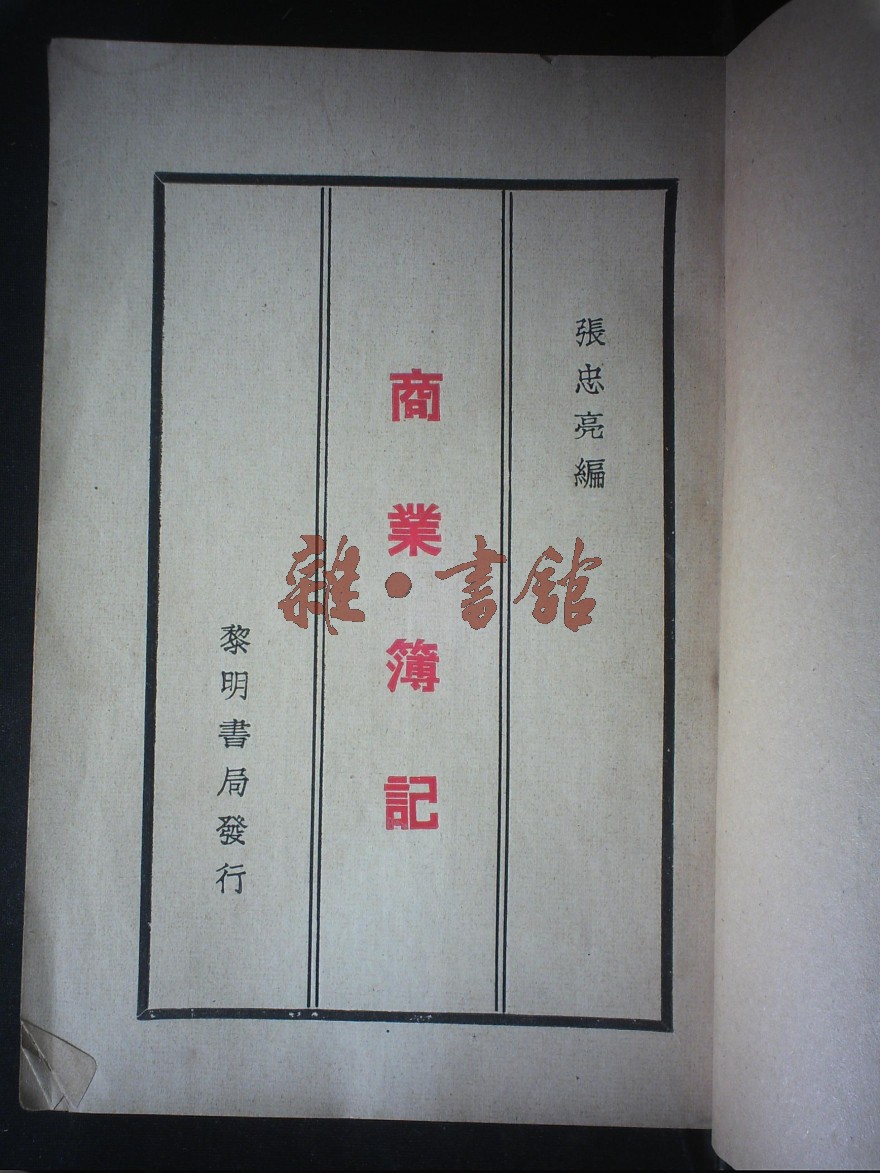 張忠亮編
商業簿記
黎明書局發行
雜·書館